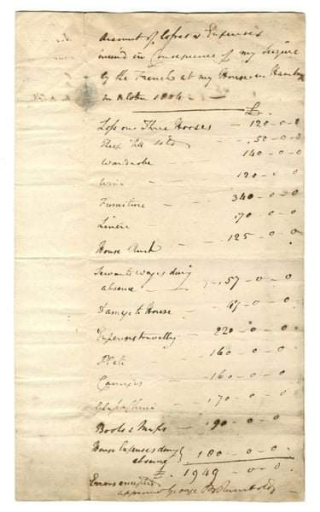 Account of Losses & Expences
incurred in Consequence of my Seizure
by the French at my House in Hambg
in October 1804
£
Loss on Three Horses — 120-0-0
50-0-0
Wardrobe — 140-0-0
Wine — 120-0-0
Furniture — 340-0-0
Linen — 70-0-0
House Rent — 125-0-0
Servants wages during
absence — 157-0-0
Damage to House — 47-0-0
Expences travelling 220-0-0
Plate — 160-0-0
Carriages — 160-0-0
Glass & China — 70-0-0
Books & Maps — 90-0-0
House Expences during
absence 180-0-0
£ 1949-0-0
Errors excepted
George Rumbold